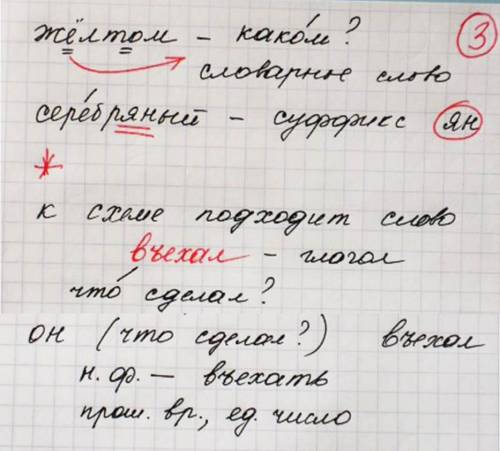 жёлтом – како́м? 3
словарное слово
сере́бряный – суффикс ян
*
к схеме подходит слово
въехал – глагол
что́ сделал?
он (что сделал?) въехал
н. ф. — въехать
прош. вр., ед. число